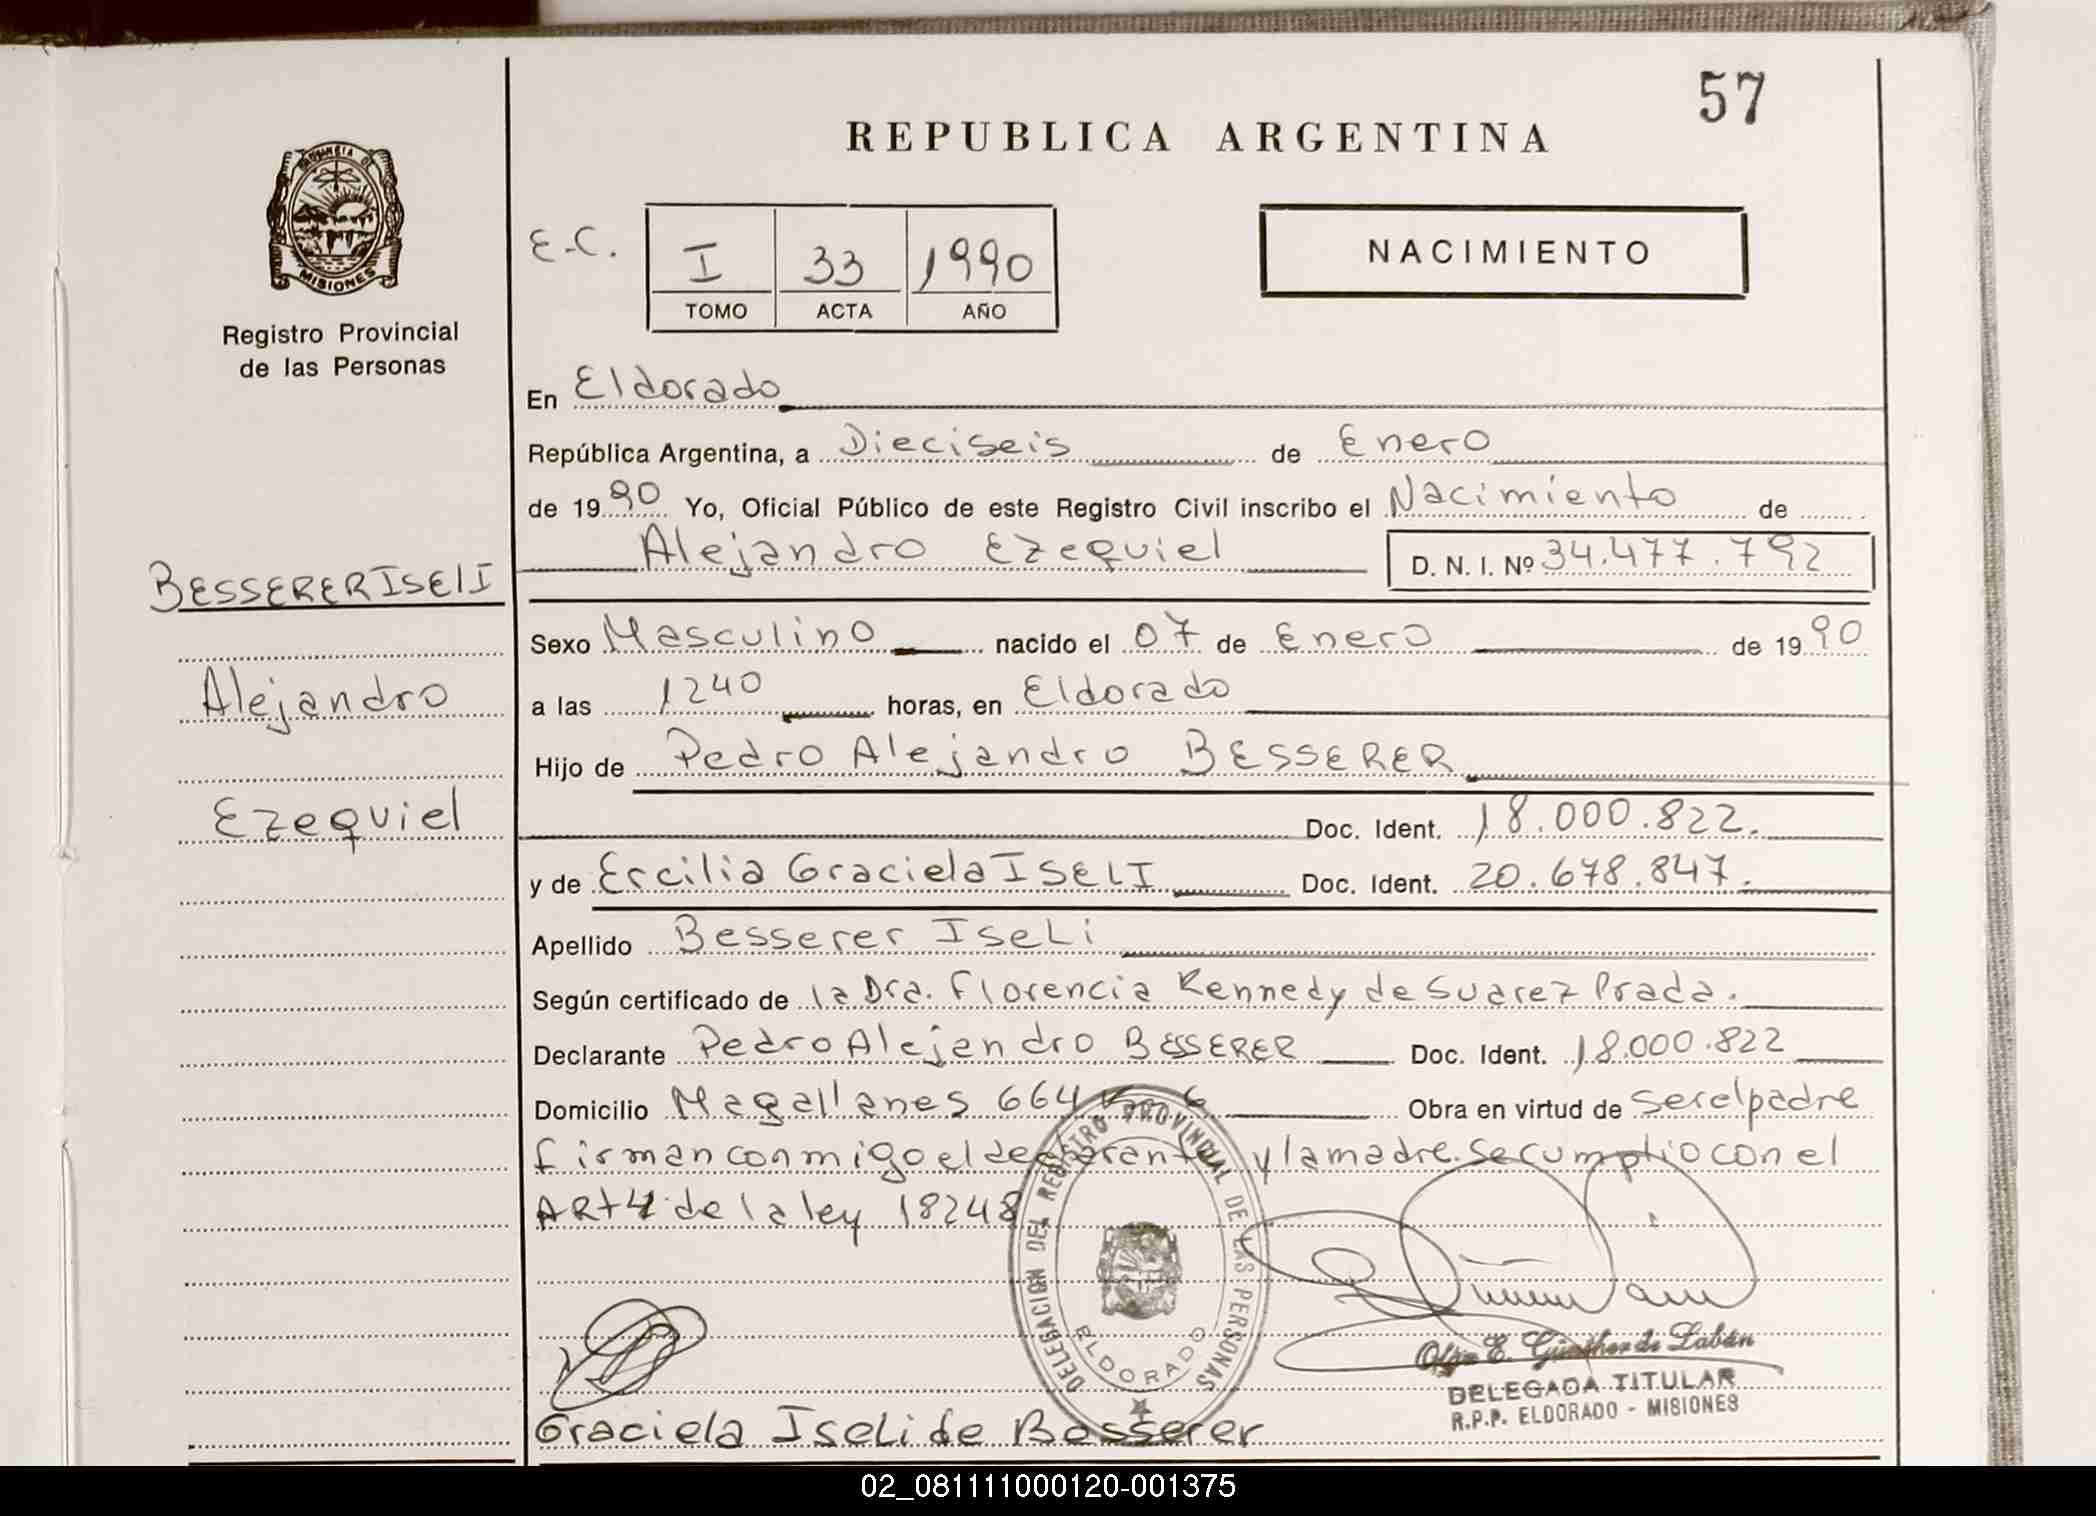 57
REPUBLICA ARGENTINA
PROVINCIA DE
MISIONES
Registro Provincial
de las Personas
E.C.
I 33 1990
TOMO ACTA AÑO
NACIMIENTO
En Eldorado
República Argentina, a Dieciseis de Enero
de 1990 Yo, Oficial Público de este Registro Civil inscribo el Nacimiento de
Alejandro Ezequiel D. N. I. Nº 34.477.792
BESSERER ISELI
Alejandro
Ezequiel
Sexo Masculino nacido el 07 de Enero de 1990
a las 1240 horas, en Eldorado
Hijo de Pedro Alejandro BESSERER
Doc. Ident. 18.000.822.
y de Ercilia Graciela ISELI Doc. Ident. 20.678.847.
Apellido Besserer Iseli
Según certificado de la Dra. Florencia Kennedy de Suarez Prada.
Declarante Pedro Alejandro BESSERER Doc. Ident. 18.000.822
Domicilio Magallanes 664 Km 6 Obra en virtud de ser el padre
firman conmigo el declarante y la madre. Se cumplio con el
ART 4 de la ley 18248
DELEGACION DEL REGISTRO PROVINCIAL DE LAS PERSONAS
ELDORADO
Olga E. Günther de Labán
DELEGADA TITULAR
R.P.P. ELDORADO - MISIONES
Graciela Iseli de Besserer
02_081111000120-001375